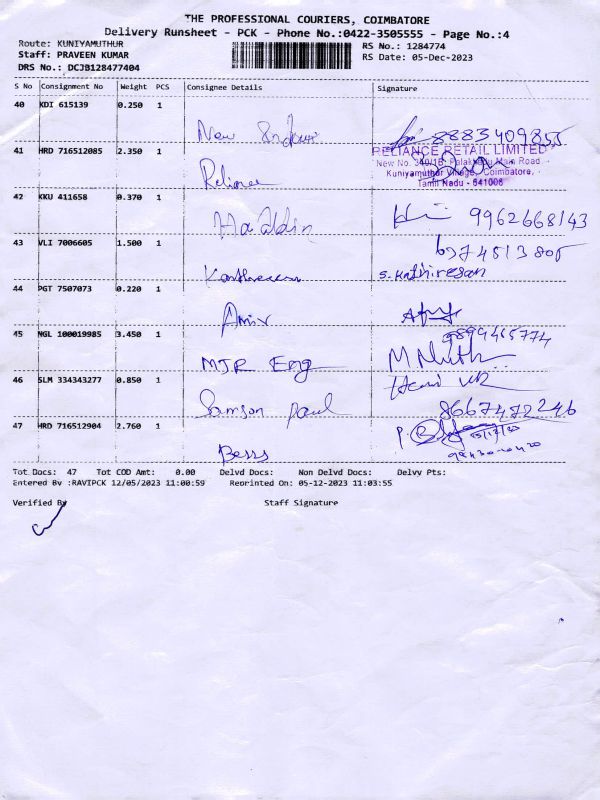 THE PROFESSIONAL COURIERS, COIMBATORE
Delivery Runsheet - PCK - Phone No.:0422-3505555 - Page No.:4
Route: KUNIYAMUTHUR
RS No.: 1284774
Staff: PRAVEEN KUMAR
RS Date: 05-Dec-2023
DRS No.: DCJB128477404
S No Consignment No Weight PCS Consignee Details Signature
40 KDI 615139 0.250 1
New 8883409855
41 HRD 716512085 2.350 1
RELIANCE RETAIL LIMITED
New No. Palakkadu Main Road
Kuniyamuthur Village, Coimbatore,
Tamil Nadu - 641008
Reliance
42 KKU 411658 0.370 1
9962668143
43 VLI 7006605 1.500 1
S. Kathiresan
44 PGT 7507073 0.220 1
Amir
45 NGL 100019985 3.450 1
MJR Eng
46 SLM 334343277 0.850 1
Samson Paul 8667472246
47 HRD 716512904 2.760 1
Tot Docs: 47 Tot COD Amt: 0.00 Delvd Docs: Non Delvd Docs: Delvy Pts:
Entered By :RAVIPCK 12/05/2023 11:00:59 Reprinted On: 05-12-2023 11:03:55
Verified By Staff Signature